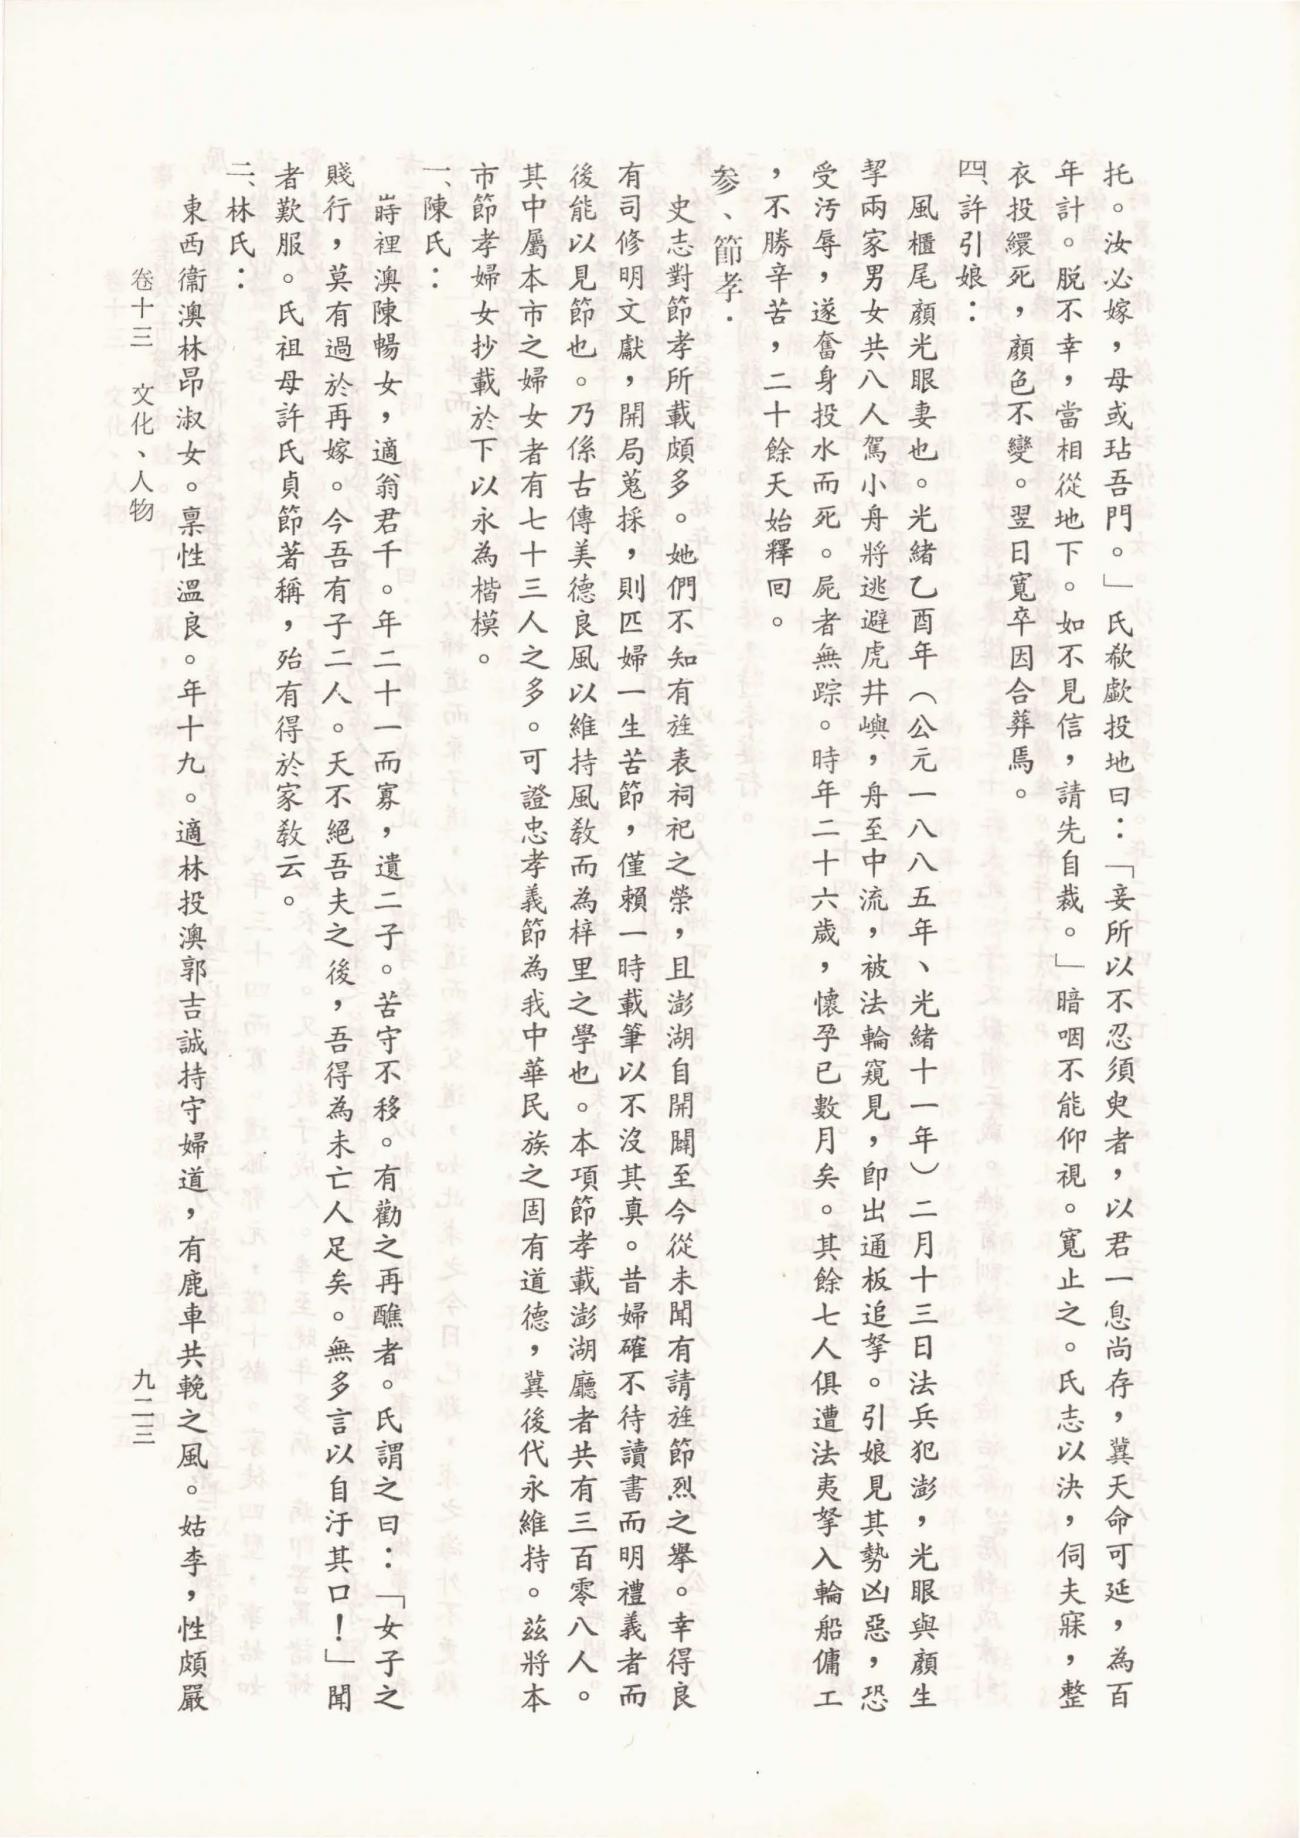 托。汝必嫁，母或玷吾門。」氏欷歔投地曰：「妾所以不忍須臾者，以君一息尚存，冀天命可延，為百
年計。脫不幸，當相從地下。如不見信，請先自裁。」暗咽不能仰視。寬止之。氏志以決，伺夫寐，整
衣投繯死，顏色不變。翌日寬卒因合葬焉。
四、許引娘：
風櫃尾顏光眼妻也。光緒乙酉年（公元一八八五年、光緒十一年）二月十三日法兵犯澎，光眼與顏生
挈兩家男女共八人駕小舟將逃避虎井嶼，舟至中流，被法輪窺見，卽出通板追拏。引娘見其勢凶惡，恐
受污辱，遂奮身投水而死。屍者無踪。時年二十六歲，懷孕已數月矣。其餘七人俱遭法夷拏入輪船傭工
，不勝辛苦，二十餘天始釋回。
參、節孝．
史志對節孝所載頗多。她們不知有旌表祠祀之榮，且澎湖自開闢至今從未聞有請旌節烈之舉。幸得良
有司修明文獻，開局蒐採，則匹婦一生苦節，僅賴一時載筆以不沒其真。昔婦確不待讀書而明禮義者而
後能以見節也。乃係古傳美德良風以維持風教而為梓里之學也。本項節孝載澎湖廳者共有三百零八人。
其中屬本市之婦女者有七十三人之多。可證忠孝義節為我中華民族之固有道德，冀後代永維持。茲將本
市節孝婦女抄載於下以永為楷模。
一、陳氏：
嵵裡澳陳暢女，適翁君千。年二十一而寡，遺二子。苦守不移。有勸之再醮者。氏謂之曰：「女子之
賤行，莫有過於再嫁。今吾有子二人。天不絕吾夫之後，吾得為未亡人足矣。無多言以自汙其口！」聞
者歎服。氏祖母許氏貞節著稱，殆有得於家教云。
二、林氏：
東西衞澳林昂淑女。稟性溫良。年十九。適林投澳郭吉誠持守婦道，有鹿車共輓之風。姑李，性頗嚴
卷十三　文化、人物
九二三